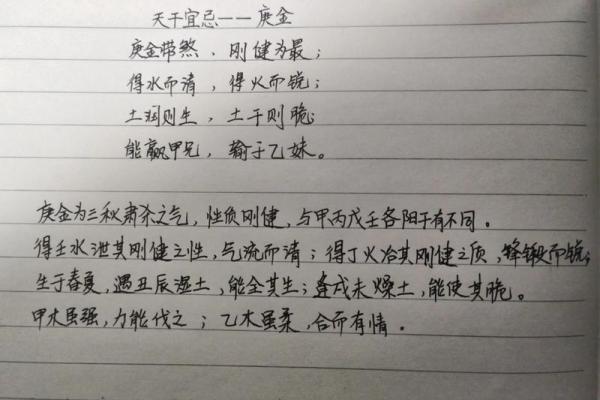 天干宜忌——庚金
庚金带煞、刚健为最；
得水而清，得火而锐；
土润则生，土干则脆；
能赢甲兄，输于乙妹。
庚金为三秋肃杀之气，性质刚健，与甲丙戊壬各阳干有不同。
得壬水泄其刚健之性，气流而清；得丁火冶其刚健之质，锋锻而锐；
生于春夏，遇丑辰湿土，能全其生；逢戌未燥土，能使其脆。
甲木虽强，力能伐之；乙木虽柔，合而有情。